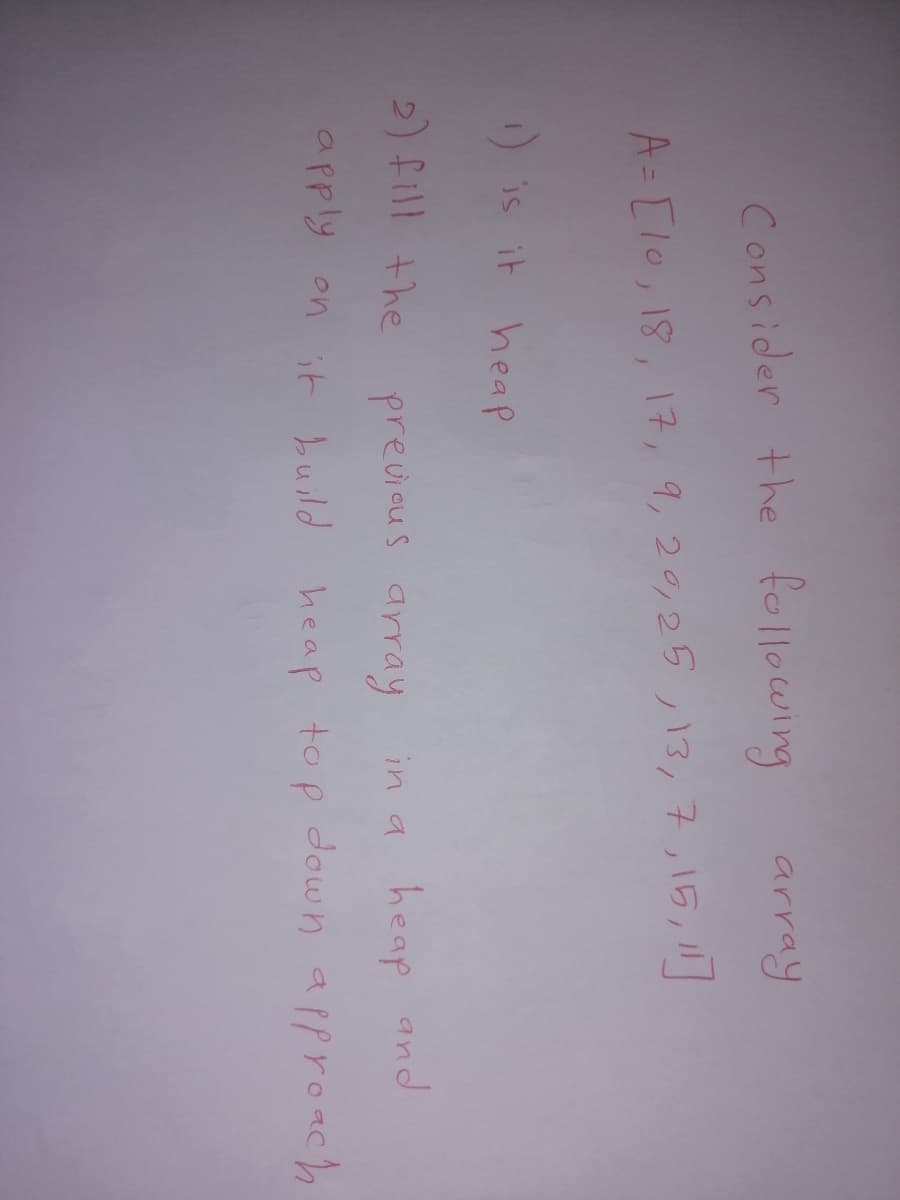 Consider the following array
A = [10, 18, 17, 9, 20, 25, 13, 7, 15, 11]
1) is it heap
2) fill the previous array in a heap and
apply on it build heap top down approach